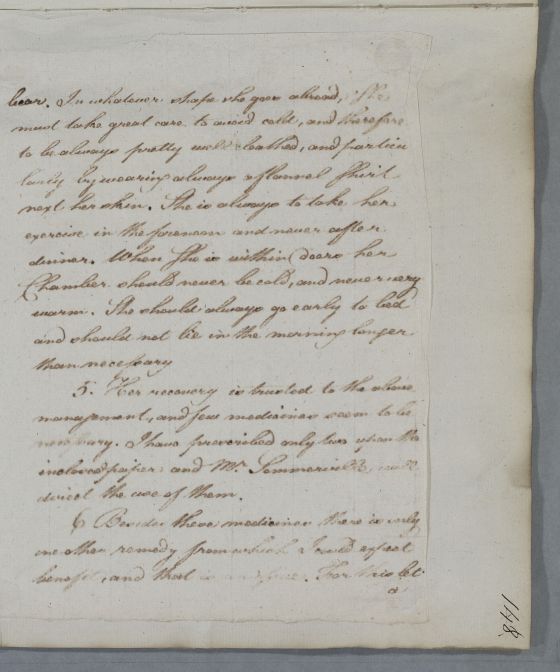 bear. In whatever shape she goes abroad, She
must take great care to avoid cold, and therefore
to be always pretty well cloathed, and particu
larly by wearing always a flannel Shirt
next her skin. She is always to take her
exercise in the forenoon and never after
dinner. When She is within doors her
Chamber should never be cold, and never very
warm. She should always go early to bed
and should not lie in the morning longer
than necessary
5. Her recovery is trusted to the above
management, and few medicines seem to be
necessary. I have prescribed only two upon the
inclosed paper and Mr. Sommervill will
direct the use of them.
6 Besides these medicines there is only
one other remedy from which I would expect
benefit, and that is an issue. For this let
a
148